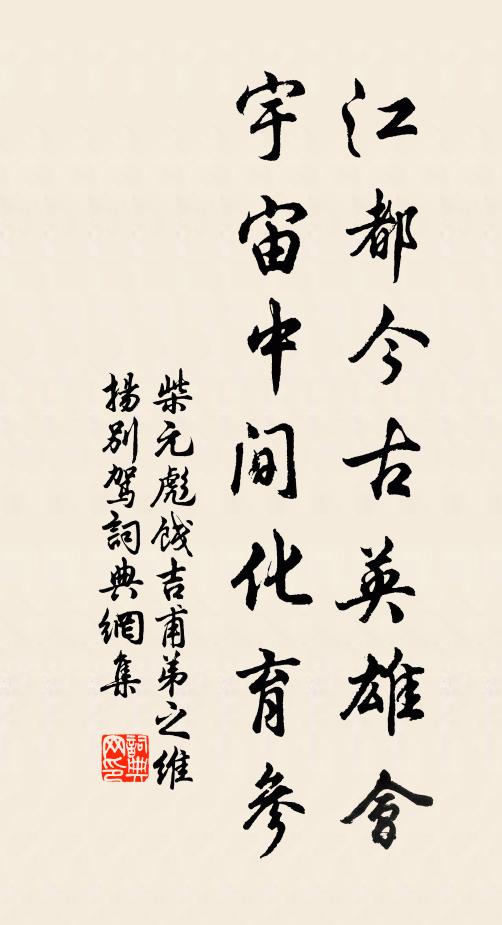 江都今古英雄會
宇宙中間化育參
柴元彪餞吉甫弟之維
揚別駕詞典網集
詞典網印